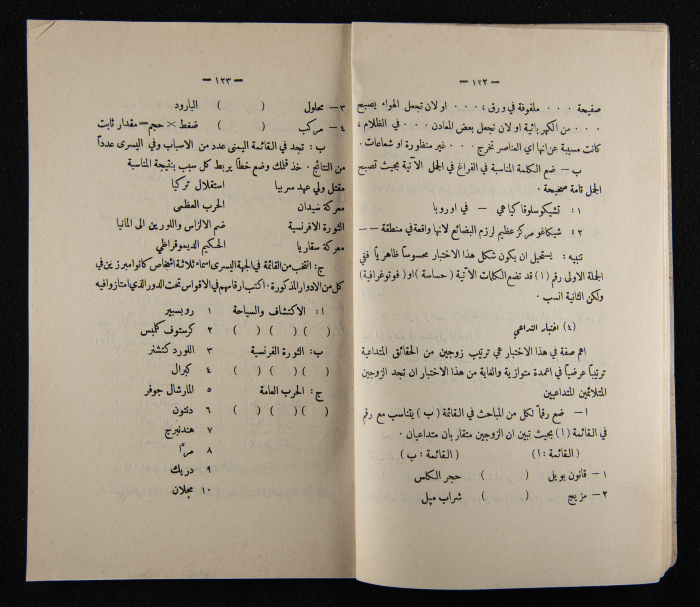 — ١٢٢ —
صفيحة ٠٠٠ ملفوفة في ورق ، ٠٠٠ او لان تجعل الهواء يصبح
٠٠٠ من الكهربائية او لان تجعل بعض المعادن ٠٠٠ في الظلام ،
كانت مسببة عن انها اي العناصر تخرج ٠٠٠ غير منظورة او شعاعات ٠
ب — ضع الكلمة المناسبة في الفراغ في الجمل الآتية بحيث تصبح
الجمل تامة صحيحة ٠
١ : تشيكوسلوفاكيا هي — في اوروبا
٢ : شيكاغو مركز عظيم لرزم البضائع لانها واقعة في منطقة — —
تنبيه : يستحيل ان يكون شكل هذا الاختبار محسوساً ظاهرياً ففي
الجملة الاولى رقم (١) قد تضع الكلمات الآتية ( حساسة ) او ( فوتوغرافية )
ولكن الثانية انسب ٠
(٤) اختبار التداعي
اهم صفة في هذا الاختبار هي ترتيب زوجين من الحقائق المتداعية
ترتيباً عرضياً في اعمدة متوازية والغاية من هذا الاختبار ان تجد الزوجين
المتلائمين المتداعيين
١ — ضع رقماً لكل من المباحث في القائمة ( ب ) يتناسب مع رقم
في القائمة (١) بحيث تبين ان الزوجين متقاربان متداعيان ٠
( القائمة : ١ ) ( القائمة : ب )
١ — قانون بويل ( ) حجر الكلس
٢ — مزيج ( ) شراب ميبل
— ١٢٣ —
٣ — محلول ( ) البارود
٤ — مركب ( ) ضغط × حجم = مقدار ثابت
ب : تجد في القائمة اليمنى عدد من الاسباب وفي اليسرى عدداً
من النتائج ٠ خذ قلمك وضع خطاً يربط كل سبب بنتيجة المناسبة
مقتل ولي عهد سربيا استقلال تركيا
معركة سيدان الحرب العظمى
الثورة الافرنسية ضم الالزاس واللورين الى المانيا
معركة سقاريا الحكم الديموقراطي
ج : انتخب من القائمة في الجهة اليسرى اسماء ثلاثة اشخاص كانوا مبرزين في
كل من الادوار المذكورة ٠ اكتب ارقامهم في الاقواس تحت الدور الذي امتازوا فيه
١ : الاكتشاف والسياحة ١ روبسبير
( ) ( ) ( ) ٢ كرستوف كلمبس
ب : الثورة الفرنسية ٣ اللورد كتشنر
( ) ( ) ( ) ٤ كبرال
ج : الحرب العامة ٥ المارشال جوفر
( ) ( ) ( ) ٦ دنتون
٧ هندنبرج
٨ مرّا
٩ دريك
١٠ مجلان